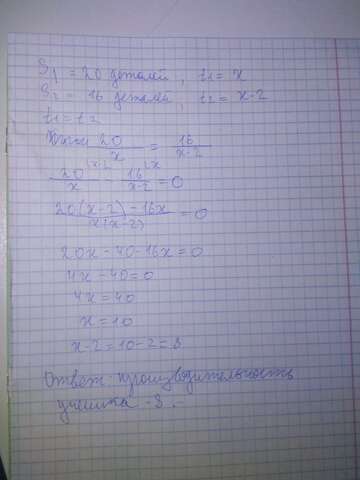 S₁ = 20 деталей, t₁ = x
S₂ = 16 деталей, t₂ = x-2
t₁ = t₂
20/x = 16/(x-2)
20/x - 16/(x-2) = 0
(20(x-2) - 16x)/(x(x-2)) = 0
20x - 40 - 16x = 0
4x - 40 = 0
4x = 40
x = 10
x - 2 = 10 - 2 = 8
Ответ: производительность
ученика - 8.